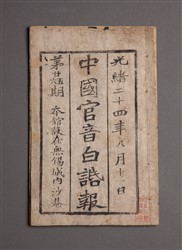 光緒二十四年八月十一日
中國官音白話報
第廿五期 本館設在無錫城內沙巷